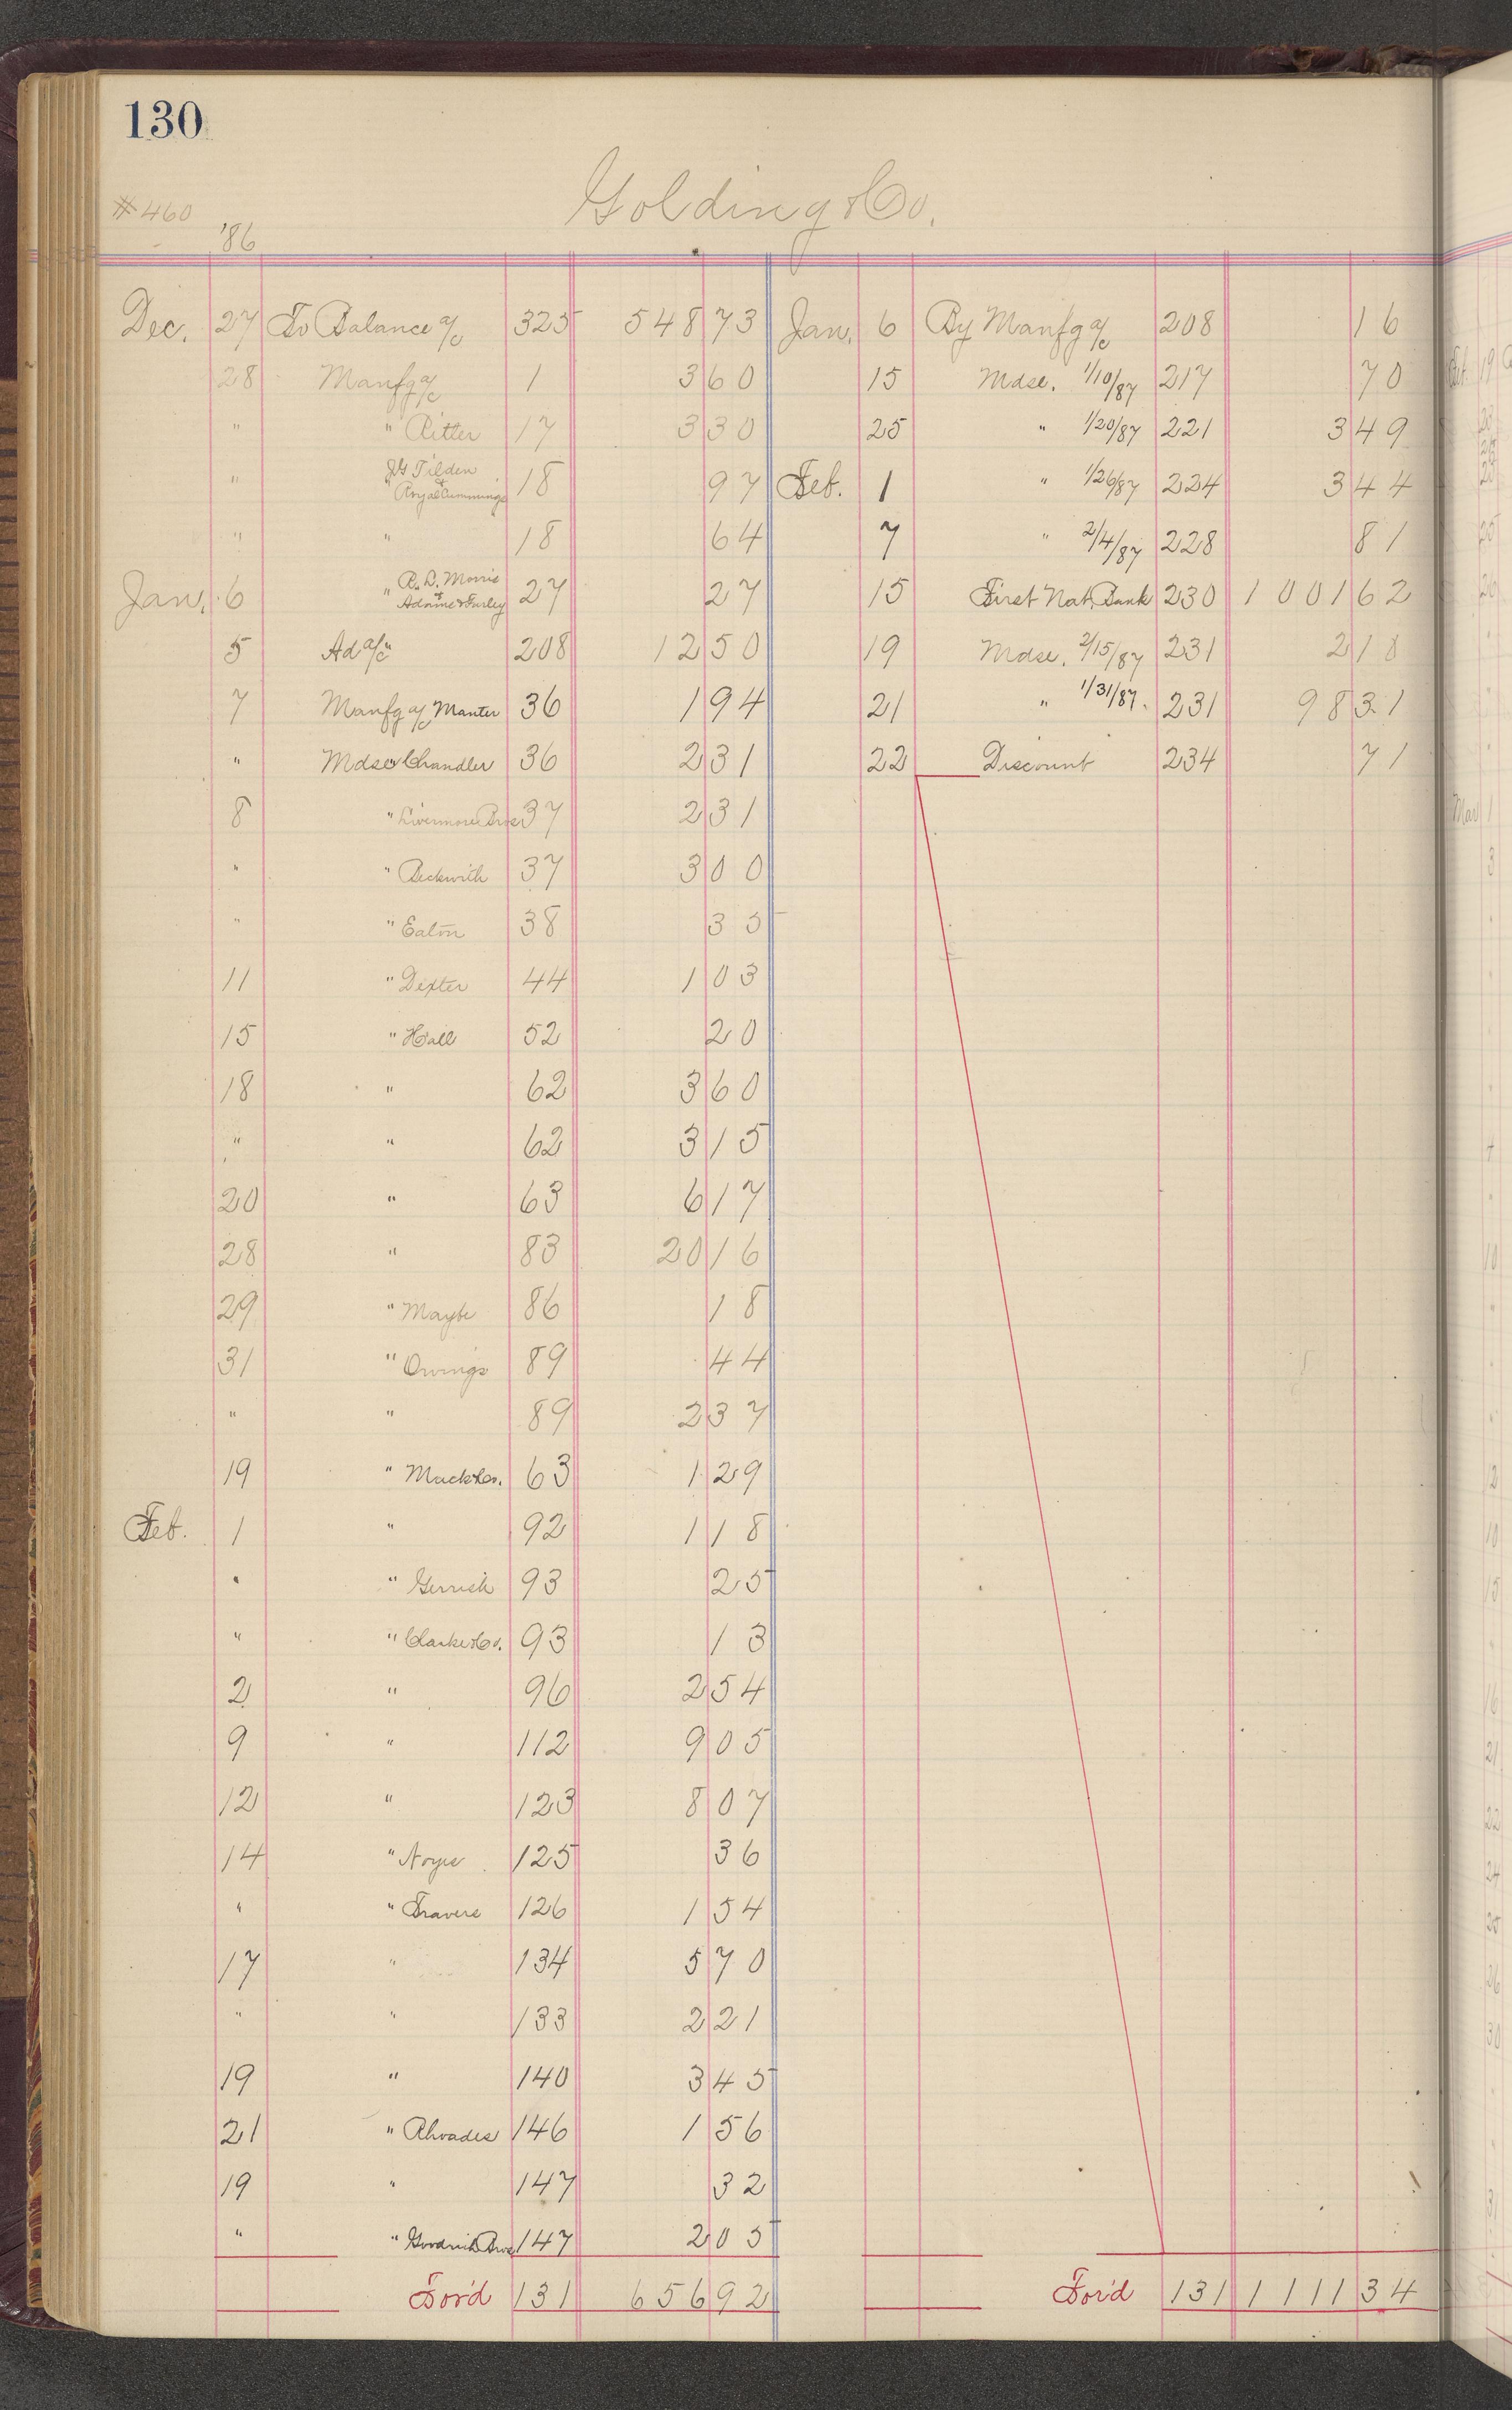 130
Golding & Co.
#460
'86
Dec. 27 To Balance a/c 325 548 73 Jan. 6 By Manfg a/c 208 16
28 Manfg a/c 1 3 60 15 Mdse. 1/10/87 217 70
" " Ritter 17 3 30 25 " 1/20/87 221 3 49
" " J G Tilden & Royal Cummings 18 97 Feb. 1 " 1/26/87 224 3 44
" " 18 64 7 " 2/4/87 228 81
Jan. 6 " R. D. Morris & Adams & Furley 27 27 15 First Nat. Bank 230 1001 62
5 Ad a/c " 208 12 50 19 Mdse. 2/15/87 231 2 18
7 Manfg a/c Manter 36 1 94 21 " 1/31/87. 231 98 31
" Mdse " Chandler 36 2 31 22 Discount 234 71
8 " Livermore Bros 37 2 31
" " Beckwith 37 3 00
" " Eaton 38 35
11 " Dexter 44 1 03
15 " Hall 52 20
18 " 62 3 60
" " 62 3 15
20 " 63 6 17
28 " 83 20 16
29 " Maybe 86 18
31 " Owings 89 44
" " 89 2 37
19 " Mack & Co. 63 1 29
Feb. 1 " 92 1 18
" " Gerrish 93 25
" " Clarke & Co. 93 13
2 " 96 2 54
9 " 112 9 05
12 " 123 8 07
14 " Noyes 125 36
" " Travers 126 1 54
17 " 134 5 70
" " 133 2 21
19 " 140 3 45
21 " Rhoades 146 1 56
19 " 147 32
" " Goodrich Bros 147 2 05
For'd 131 656 92 For'd 131 1111 34